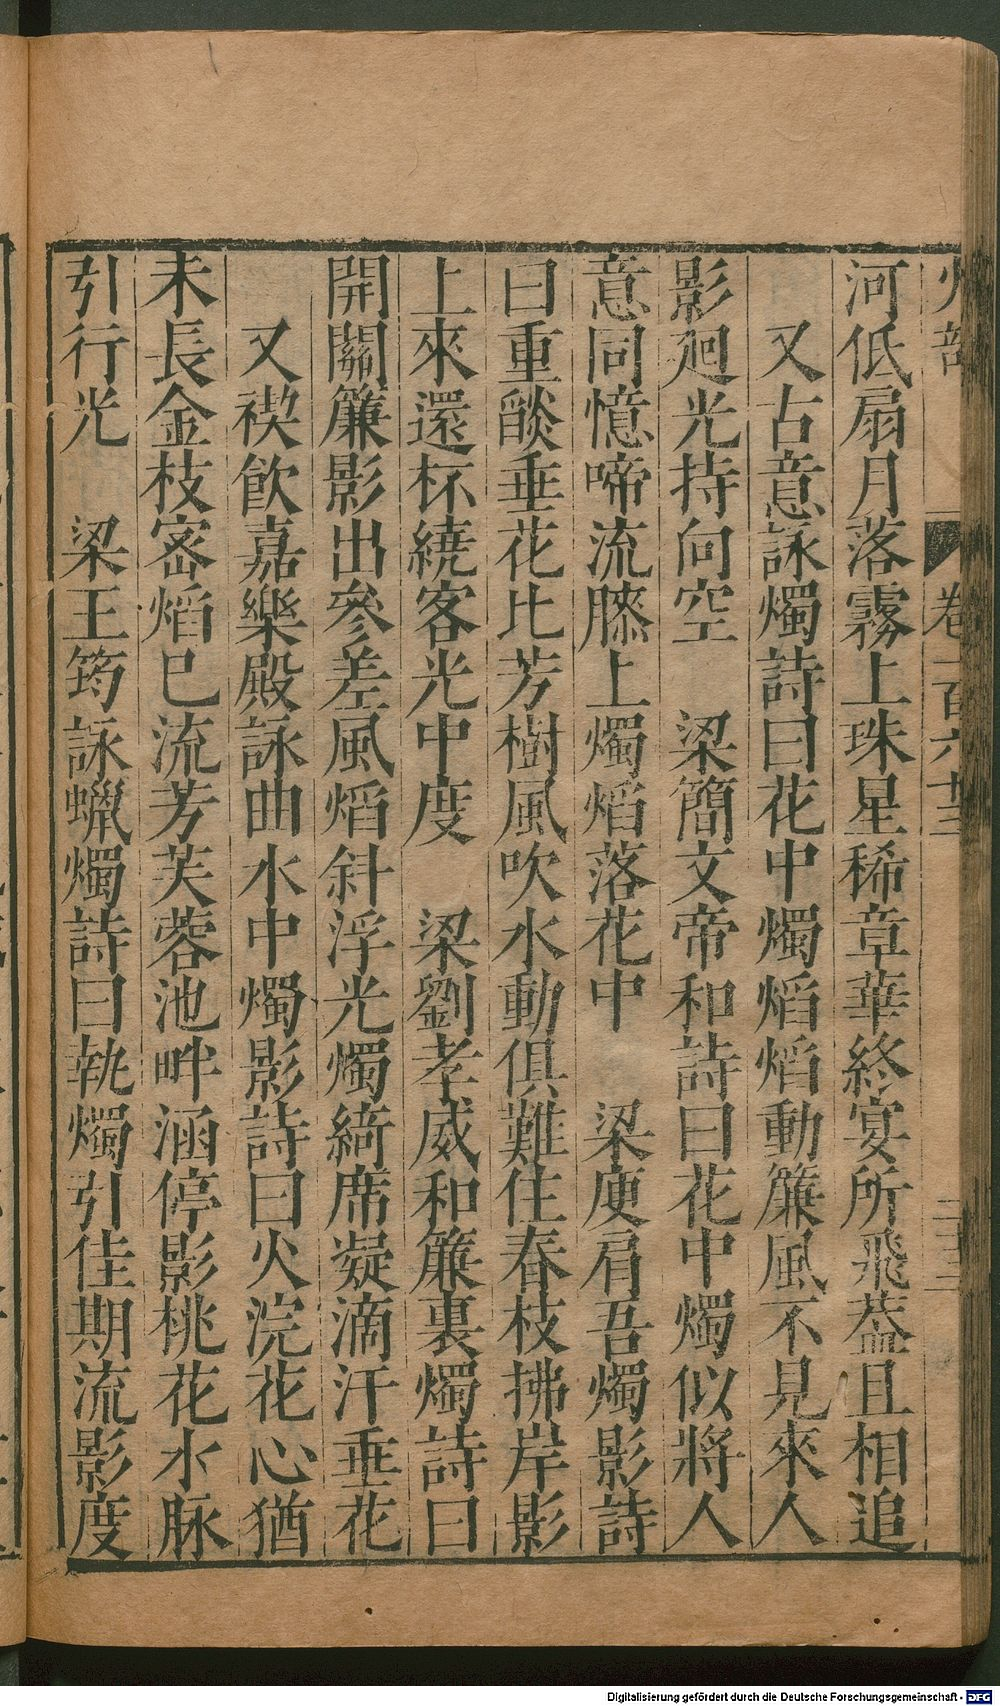 火部 卷一百六十三 二十三
河低扇月落霧上珠星稀章華終宴所飛葢且相追
又古意詠燭詩曰花中燭熖熖動簾風不見來人
影廻光持向空 梁簡文帝和詩曰花中燭似將人
意同憶啼流膝上燭熖落花中 梁庾肩吾燭影詩
曰重燄垂花比芳樹風吹水動俱難住春枝拂岸影
上來還杯繞客光中度 梁劉孝威和簾裏燭詩曰
開關簾影出參差風熖斜浮光燭綺席凝滴汗垂花
又禊飮嘉樂殿詠曲水中燭影詩曰火浣花心猶
未長金枝宻熖巳流芳芙蓉池畔涵停影桃花水脉
引行光 梁王筠詠蠟燭詩曰執燭引佳期流影度
Digitalisierung gefördert durch die Deutsche Forschungsgemeinschaft - DFG